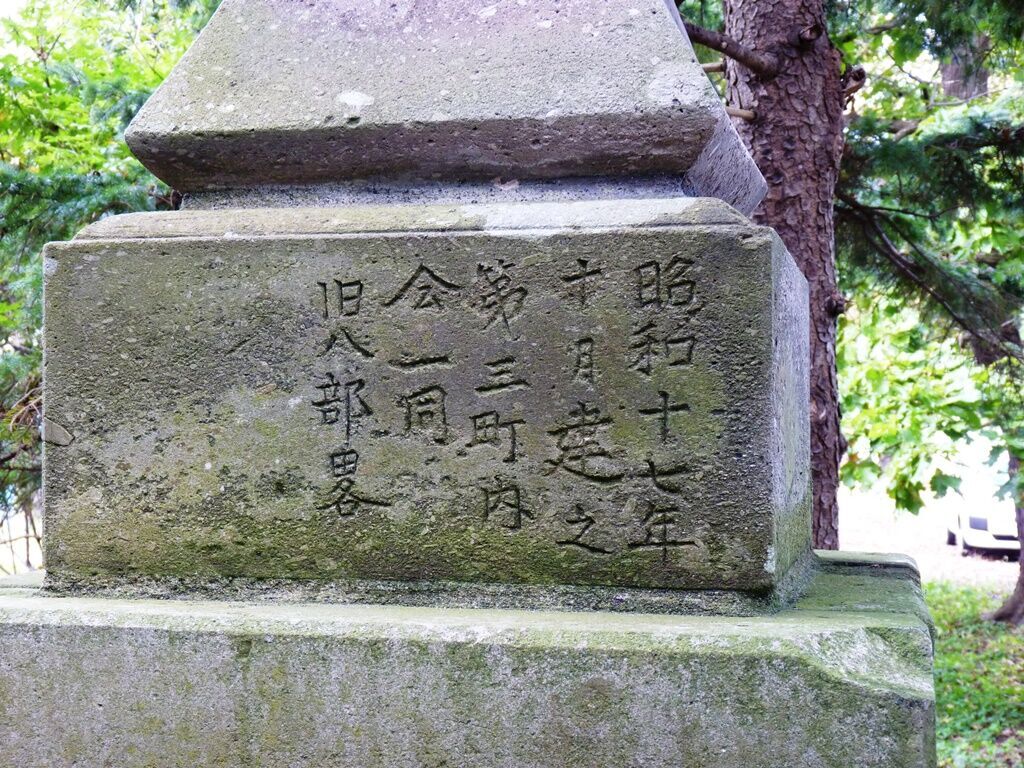 昭和十七年
十月建之
第三町内
会一同
旧八部畧